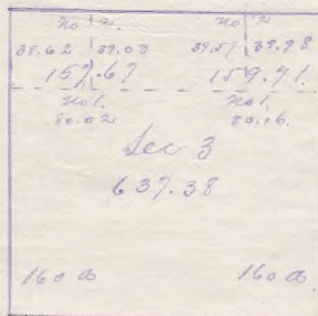 No 2. No 2
38.62 39.03 39.57 39.98
157.67 159.71
No 1. No 1.
80.02 80.16.
Sec 3
637.38
160 a 160 a.